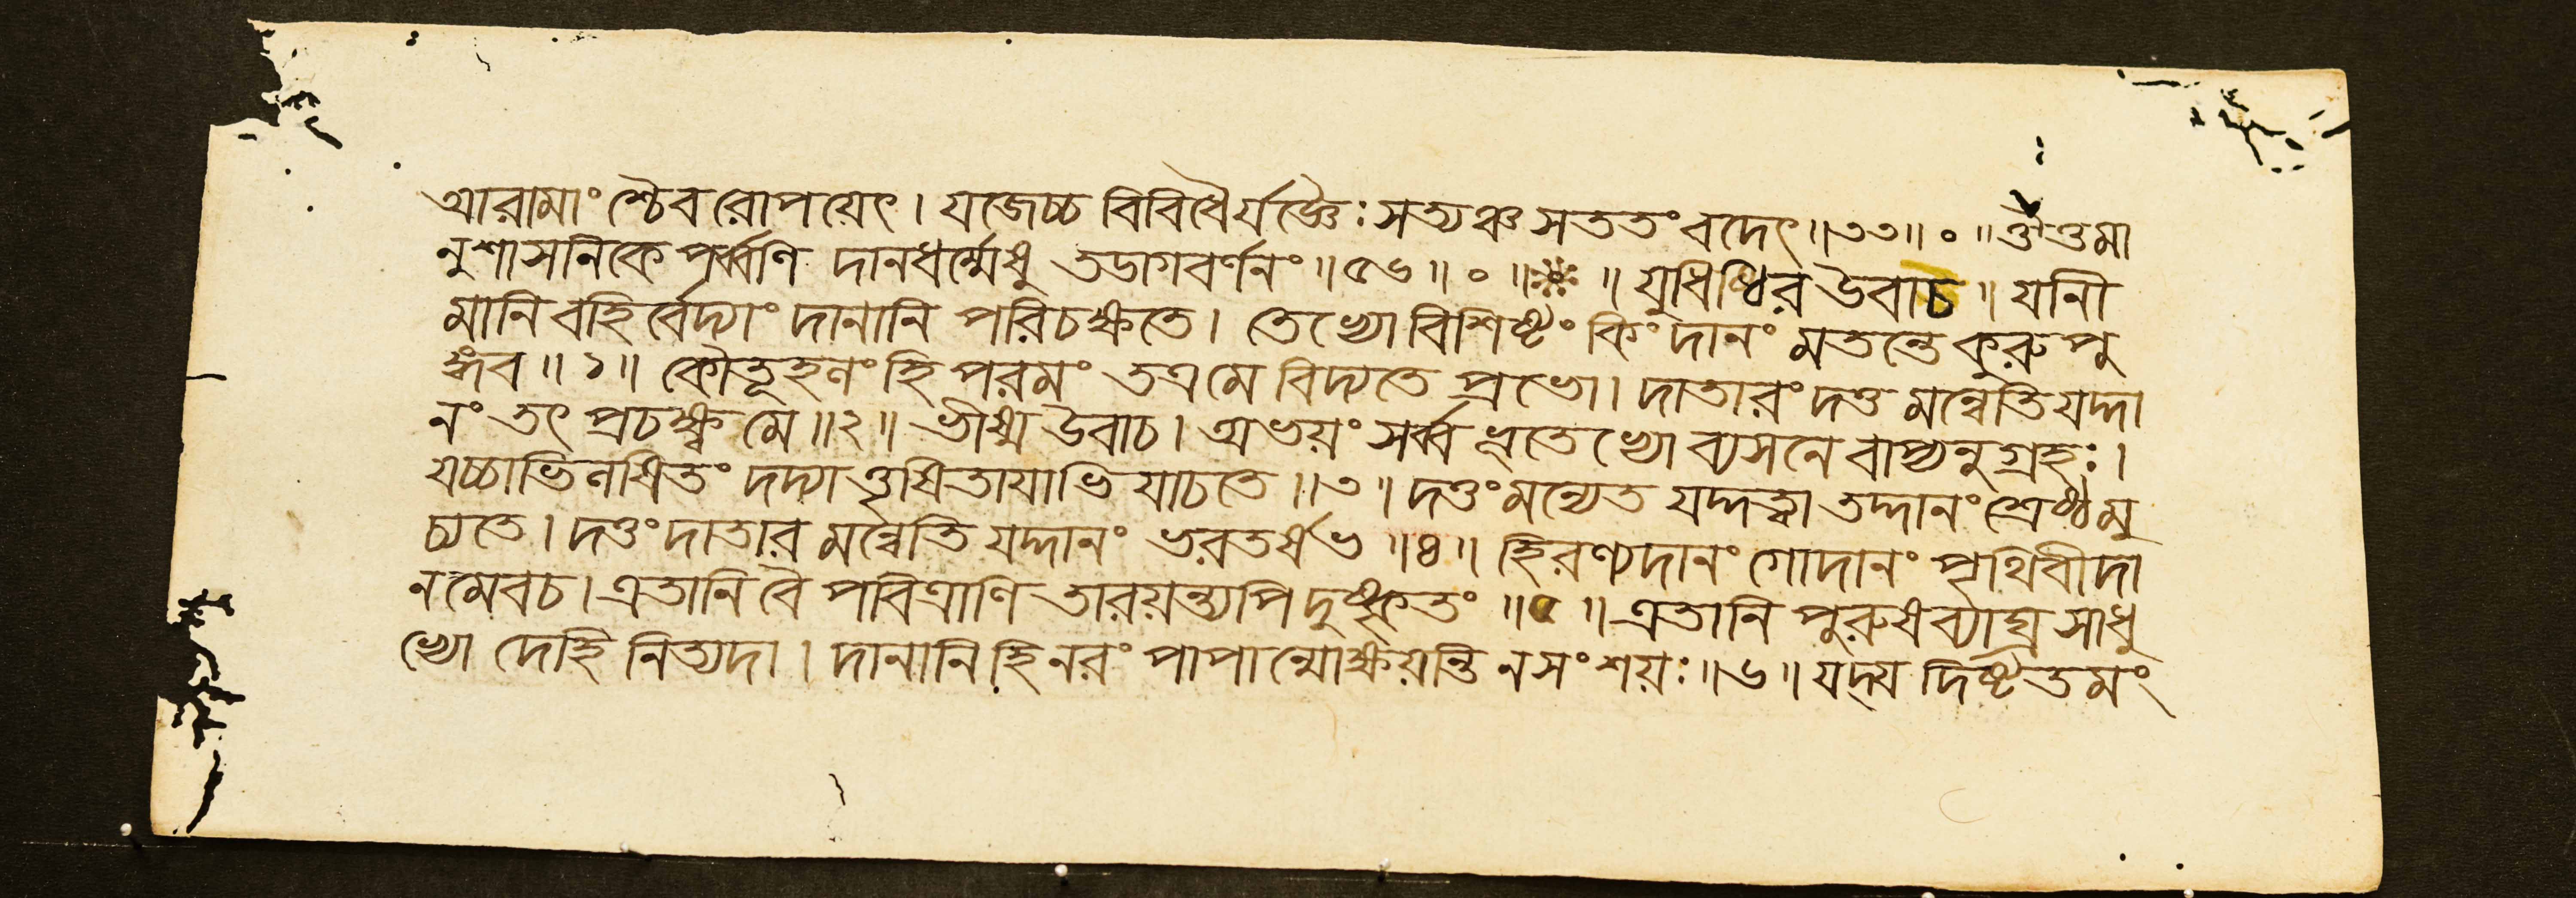 আরামাংশ্চৈব রোপয়েৎ। যজেচ্চ বিবিধৈর্যজ্ঞৈঃ সত্যঞ্চ সততং বদেৎ॥৩৩॥॰॥
নুশাসনিকে পর্ব্বণি দানধর্ম্মেষু তডাগবর্ণনং॥৫৬॥॰॥ ॥ যুধিষ্ঠির উবাচ॥ যানী
মানি বহির্বেদ্যাং দানানি পরিচক্ষতে। তেভ্যো বিশিষ্টং কিং দানং মতন্তে কুরুপু
ঙ্গব॥১॥ কৌতূহলং হি পরমং তত্র মে বিদ্যতে প্রভো। দাতারং দত্তমন্বেতি যদ্দা
নং তৎ প্রচক্ষ্ব মে॥২॥ ভীষ্ম উবাচ। অভয়ং সর্ব্বভূতেভ্যো ব্যসনে বাপ্যনুগ্রহঃ।
যচ্চাভিলষিতং দদ্যাত্তৃষিতাযাভিযাচতে॥৩॥ দত্তং মন্যেত যদ্দত্ত্বা তদ্দানং শ্রেষ্ঠমু
চ্যতে। দত্তং দাতারমন্বেতি যদ্দানং ভরতর্ষভ॥৪॥ হিরণ্যদানং গোদানং পৃথিবীদা
নমেবচ। এতানি বৈ পবিত্রাণি তারয়ন্ত্যপি দুষ্কৃতং॥৫॥ এতানি পুরুষব্যাঘ্র সাধু
ভ্যো দেহি নিত্যদা। দানানি হি নরং পাপান্মোক্ষয়ন্তি ন সংশয়ঃ॥৬॥ যদ্যদিষ্টতমং